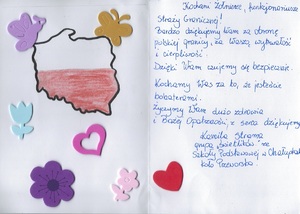 Kochani Żołnierze, funkcjonariusze
Straży Granicznej!
Bardzo dziękujemy Wam za obronę
polskiej granicy, za Waszą wytrwałość
i cierpliwość.
Dzięki Wam czujemy się bezpiecznie.
Kochamy Was za to, że jesteście
bohaterami.
Życzymy Wam dużo zdrowia
i Bożej Opatrzności, z serca dziękujemy
Karolka
grupa "Świetliki" ze
Szkoły Podstawowej w Chałupkach
koło Przeworska.